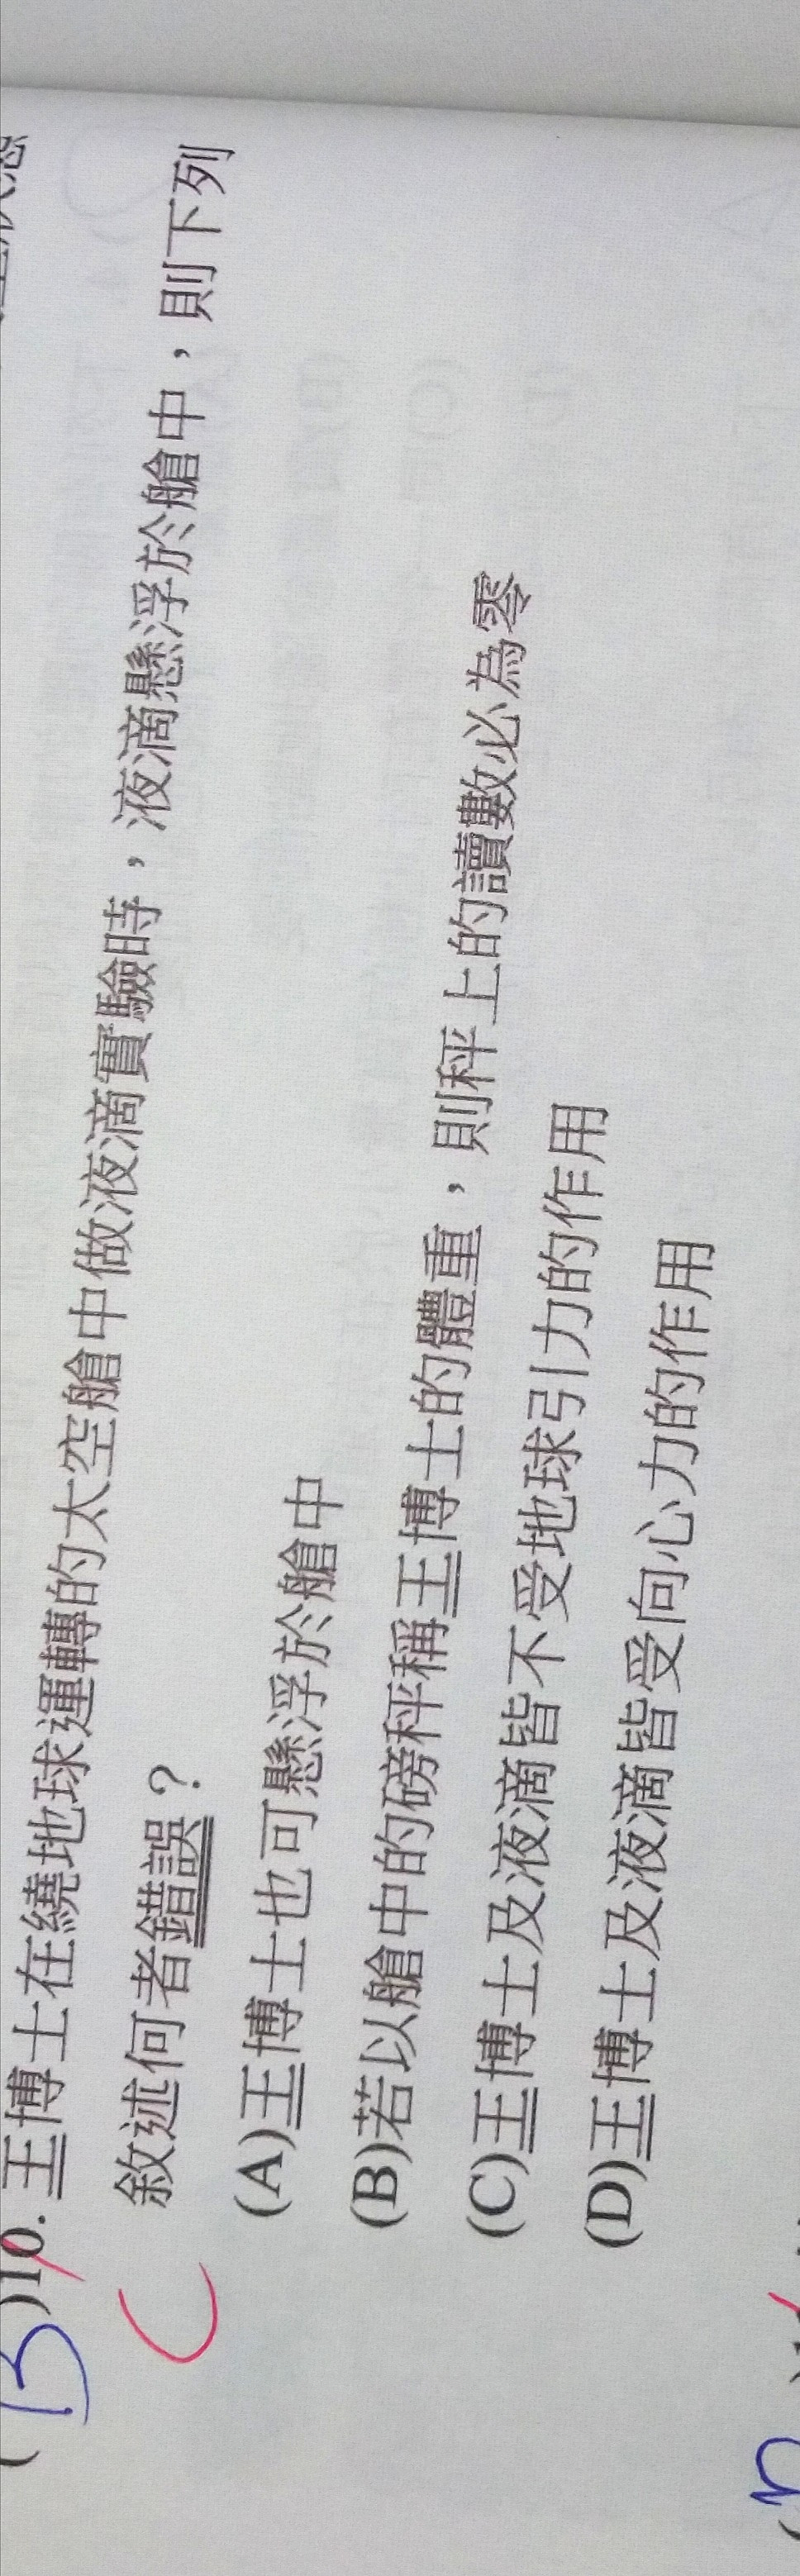 (B)10. 王博士在繞地球運轉的太空艙中做液滴實驗時，液滴懸浮於艙中，則下列
C 敘述何者錯誤？
(A)王博士也可懸浮於艙中
(B)若以艙中的磅秤稱王博士的體重，則秤上的讀數必為零
(C)王博士及液滴皆不受地球引力的作用
(D)王博士及液滴皆受向心力的作用